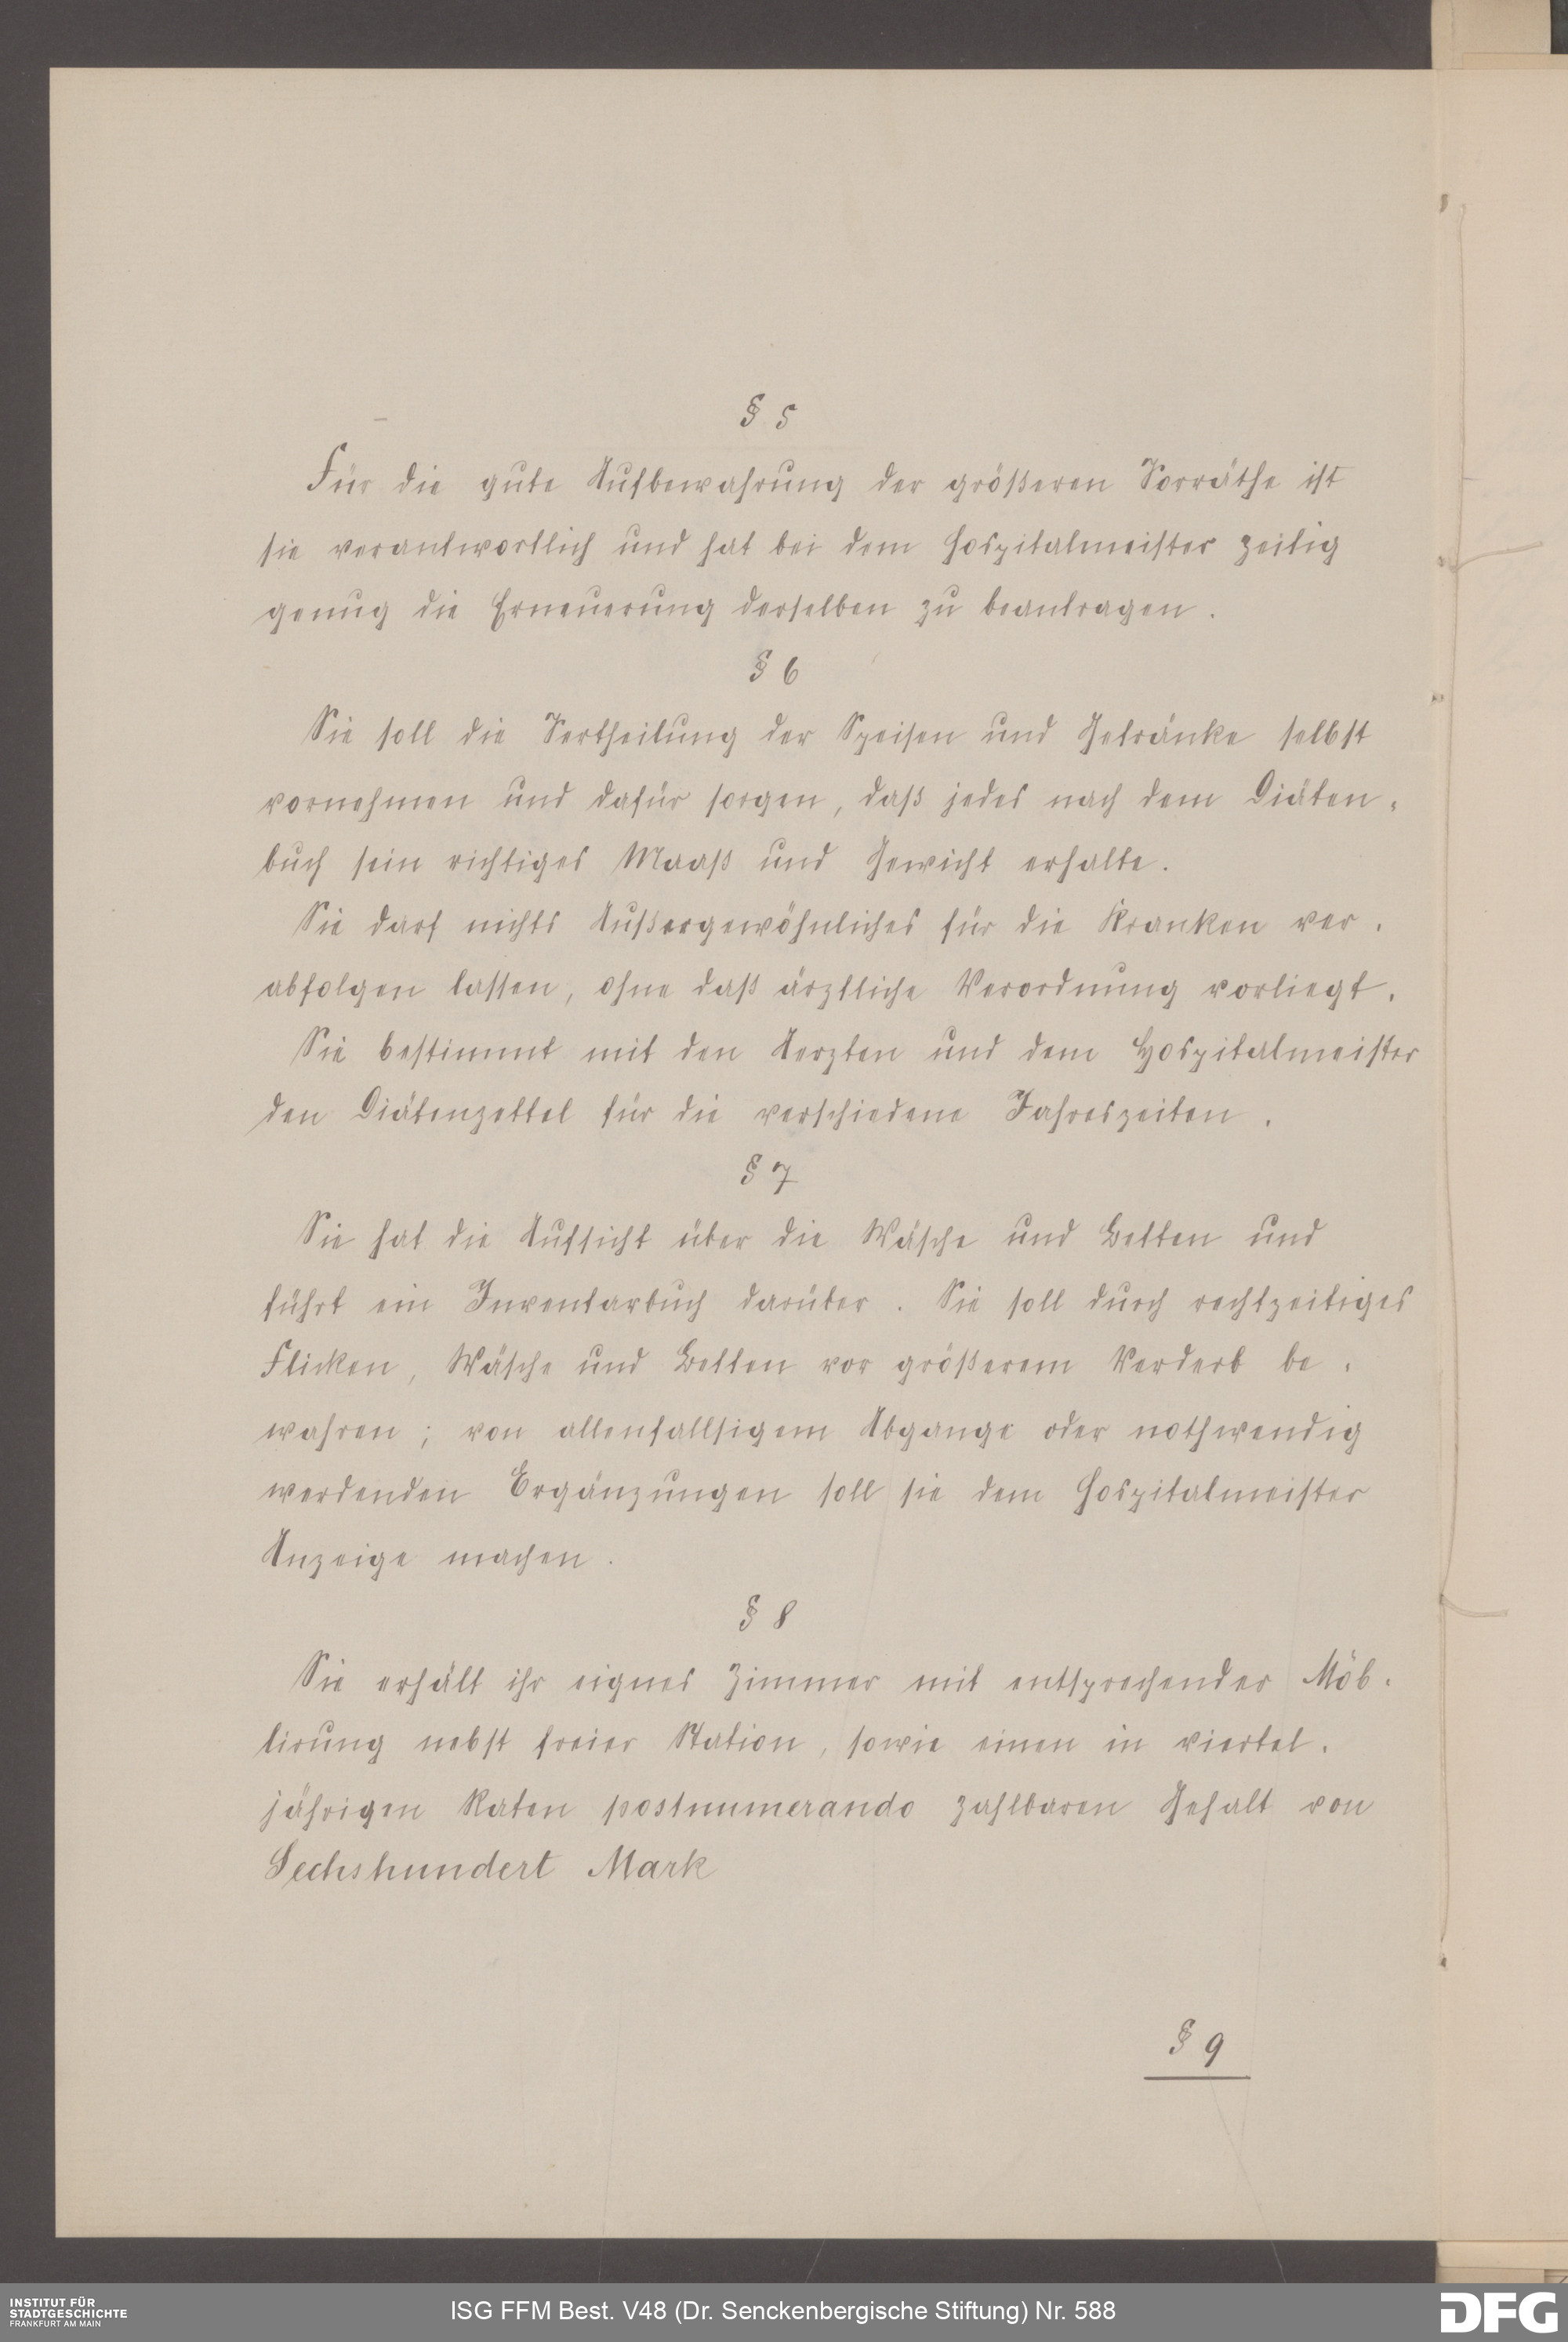 § 5
Für die gute Aufbewahrung der größeren Vorräthe ist
sie verantwortlich und hat bei dem Hospitalmeister zeitig
genug die Erneuerung derselben zu beantragen.
§ 6
Sie soll die Vertheilung der Speisen und Getränke selbst
vornehmen und dafür sorgen, daß jedes nach dem Diäten-
buch sein richtiges Maaß und Gewicht erhalte.
Sie darf nichts Außergewöhnliches für die Kranken ver-
abfolgen lassen, ohne daß ärztliche Verordnung vorliegt.
Sie bestimmt mit den Aerzten und dem Hospitalmeister
den Diätenzettel für die verschiedene Jahreszeiten.
§ 7
Sie hat die Aufsicht über die Wäsche und Betten und
führt ein Inventarbuch darüber. Sie soll durch rechtzeitiges
Flicken, Wäsche und Betten vor größerem Verderb be-
wahren; von allenfallsigem Abgange oder nothwendig
werdenden Ergänzungen soll sie dem Hospitalmeister
Anzeige machen.
§ 8
Sie erhält ihr eignes Zimmer mit entsprechender Möb-
lirung nebst freier Station, sowie einen in viertel-
jährigen Raten postnumerando zahlbaren Gehalt von
Sechshundert Mark
§ 9
INSTITUT FÜR
STADTGESCHICHTE
FRANKFURT AM MAIN
ISG FFM Best. V48 (Dr. Senckenbergische Stiftung) Nr. 588
DFG